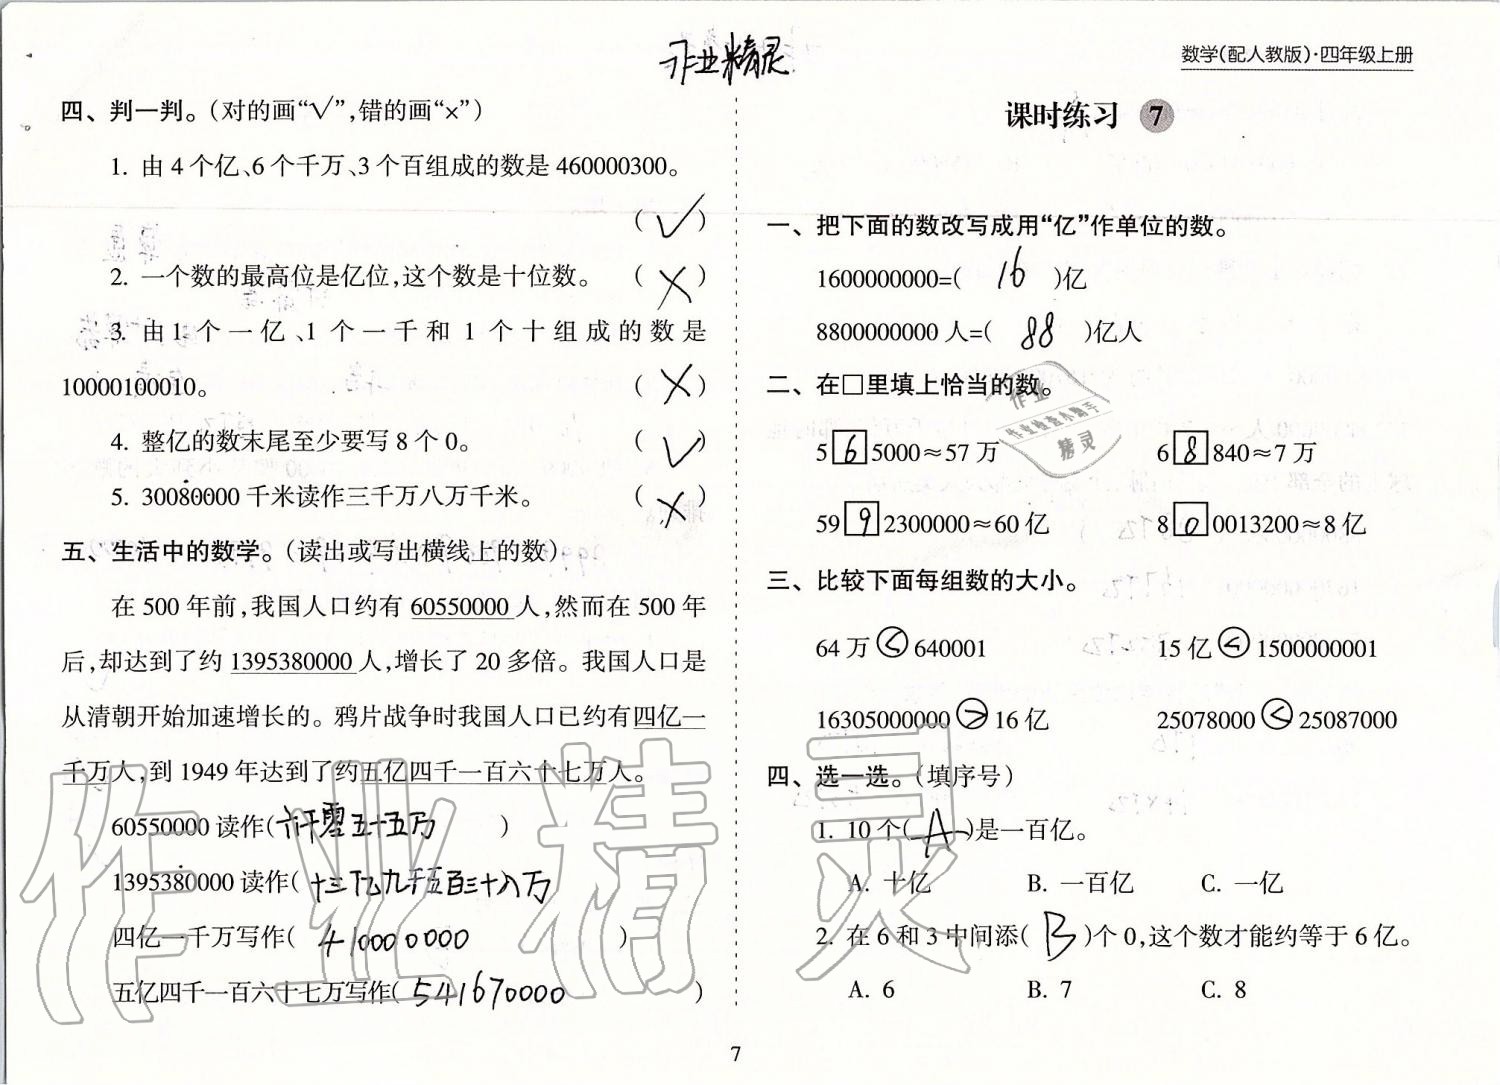 作业精灵
数学(配人教版)·四年级上册
四、判一判。(对的画“√”,错的画“×”)
1. 由4个亿、6个千万、3个百组成的数是460000300。
(√)
2. 一个数的最高位是亿位,这个数是十位数。 (×)
3. 由1个一亿、1个一千和1个十组成的数是
10000100010。 (×)
4. 整亿的数末尾至少要写8个0。 (√)
5. 30080000千米读作三千万八万千米。 (×)
五、生活中的数学。(读出或写出横线上的数)
在500年前,我国人口约有60550000人,然而在500年
后,却达到了约1395380000人,增长了20多倍。我国人口是
从清朝开始加速增长的。鸦片战争时我国人口已约有四亿一
千万人,到1949年达到了约五亿四千一百六十七万人。
60550000读作(六千零五十五万)
1395380000读作(十三亿九千五百三十八万
四亿一千万写作(410000000)
五亿四千一百六十七万写作(541670000)
课时练习 7
一、把下面的数改写成用“亿”作单位的数。
1600000000=(16)亿
8800000000人=(88)亿人
二、在□里填上恰当的数。
5 6 5000≈57万 6 8 840≈7万
59 9 2300000≈60亿 8 0 0013200≈8亿
三、比较下面每组数的大小。
64万<640001 15亿<1500000001
16305000000>16亿 25078000<25087000
四、选一选。(填序号)
1. 10个(A)是一百亿。
A. 十亿 B. 一百亿 C. 一亿
2. 在6和3中间添(B)个0,这个数才能约等于6亿。
A. 6 B. 7 C. 8
7
作业
作业检查小助手
精灵
作业精灵